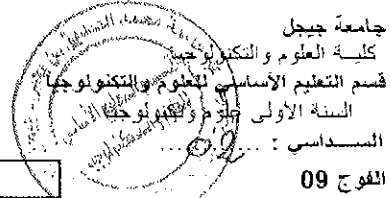 جامعة جيجل
كليـــة العلوم والتكنولوجيا
قسم التعليم الأساسي للعلوم والتكنولوجيا
السنة الأولى علوم وتكنولوجيا
الســـداسي : 02
الفوج 09